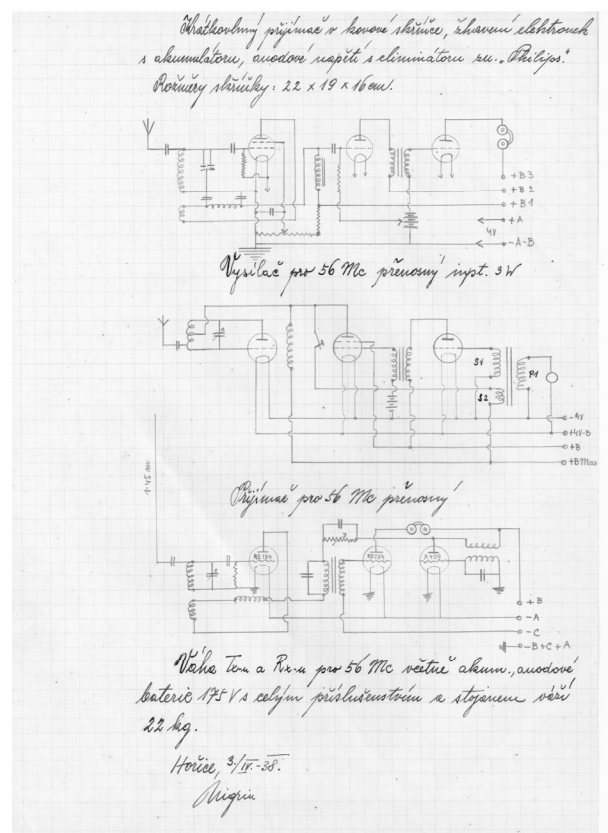 Krátkovlnný přijímač v kovové skříňce, žhavení elektronek
s akumulátoru, anodové napětí s eliminátoru zn. „Philips."
Rozměry skříňky: 22 x 19 x 16 cm.
+B3
+B2
+B1
+A
4V
-A-B
Vysílač pro 56 Mc přenosný inpt. 3W
S1
P1
S2
-4V
+4V-B
+B
+B Mas
1·45 m
Přijímač pro 56 Mc přenosný
RE134
RE134
A409
+B
-A
-C
-B+C+A
Váha Tx-u a Rx-u pro 56 Mc včetně akum., anodové
baterie 175 V s celým příslušenstvím a stojanem váží
22 kg.
Hořice, 3./IV.-38.